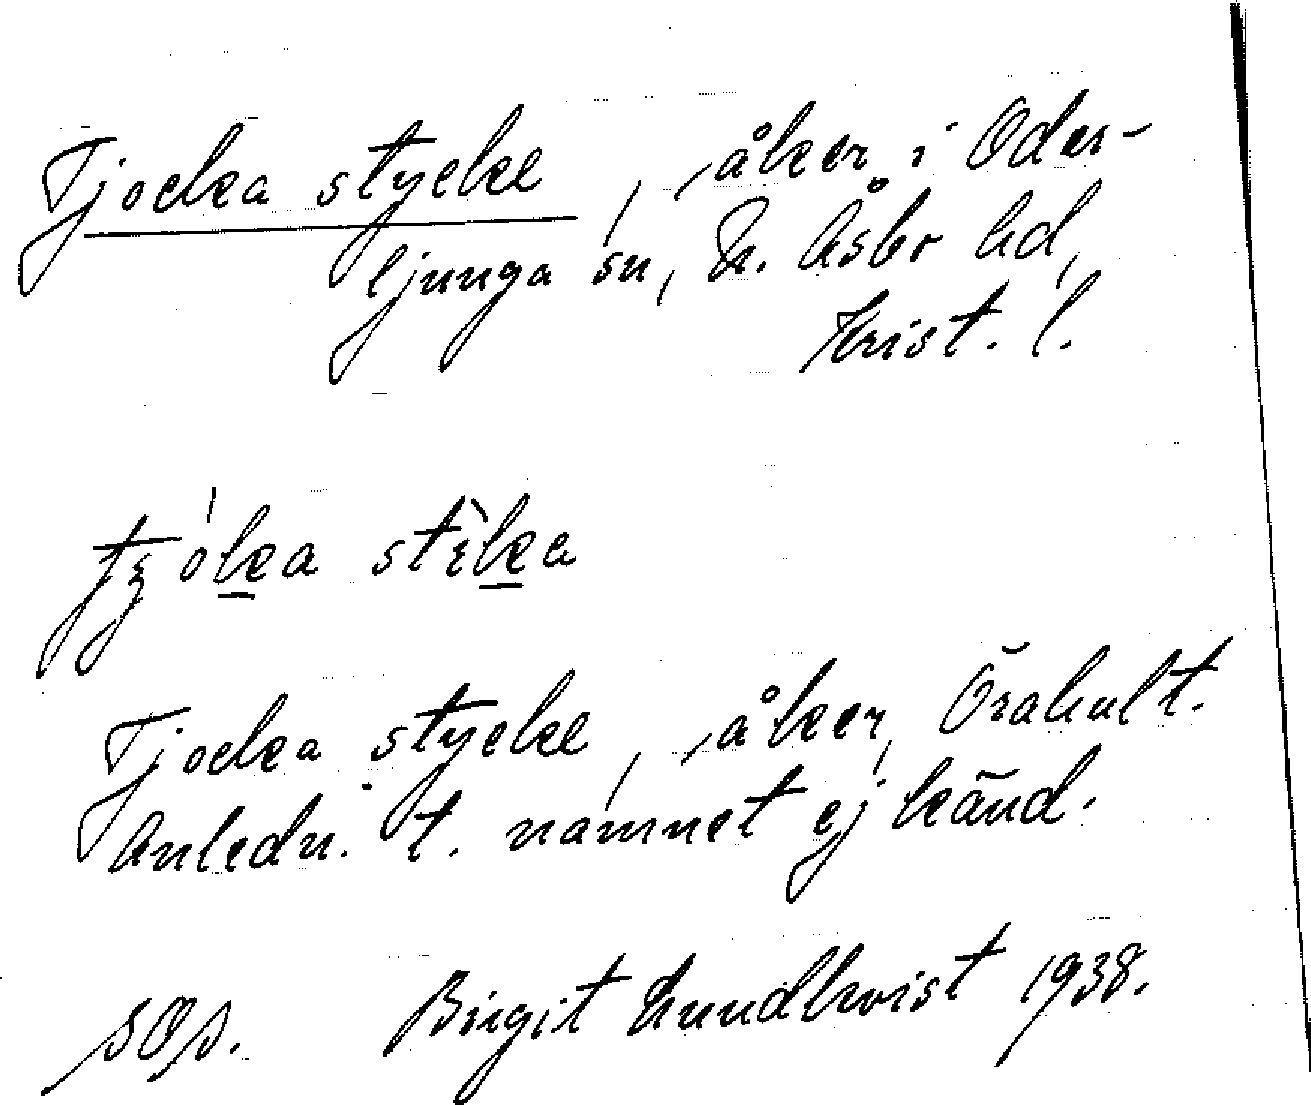 Tjocka stycke, åker i Oder-
ljunga sn, N. Åsbo hd,
Krist. l.
tjoka stika
Tjocka stycke, åker, Örahult.
Anledn. t. namnet ej känd.
Birgit Lundkvist 1938.